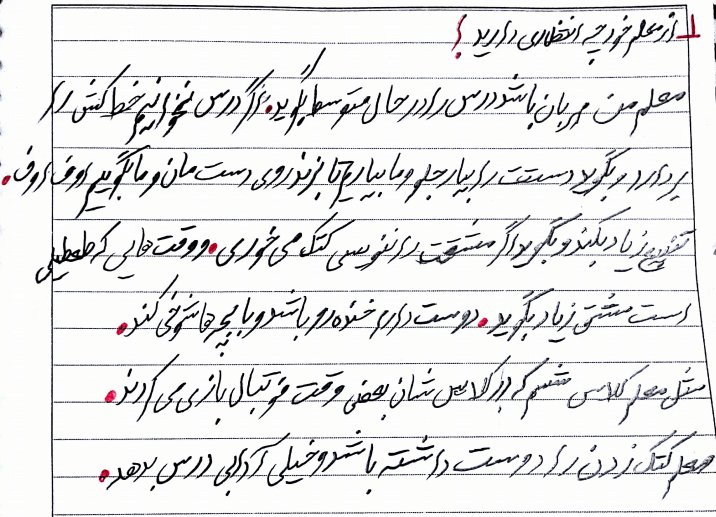 ۱ از معلم خود چه انتظاری دارید؟
معلم من مهربان باشد درس را در حال متوسط بگوید. اگر درس نخوانیم خط کش را
بردارد بگوید دستت را بیار جلو و ما بیاریم تا بزند روی دست مان و ما بگوییم اوف اوف.
زیاد بکند و بگوید اگر مشقت را ننویسی کتک می خوری. و وقت هایی که تعطیلی
است مشق زیاد بگوید. دوست دارم خنده رو باشد و با بچه ها شوخی کند.
مثل معلم کلاس ششم که در کلاس شان بعضی وقت فوتبال بازی می کردند.
معلم کتک زدن را دوست داشته باشد و خیلی آدابی درس بدهد.